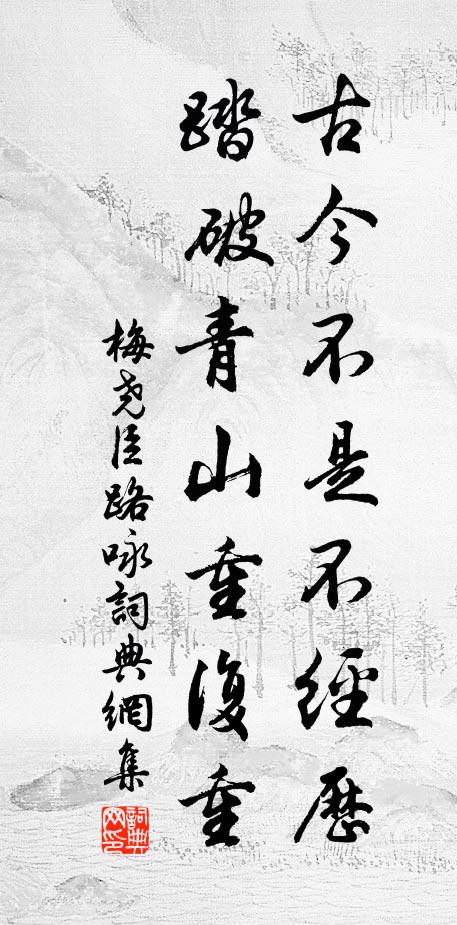 古今不是不經歷
踏破青山重復重
梅堯臣路咏詞典網集
詞典網印